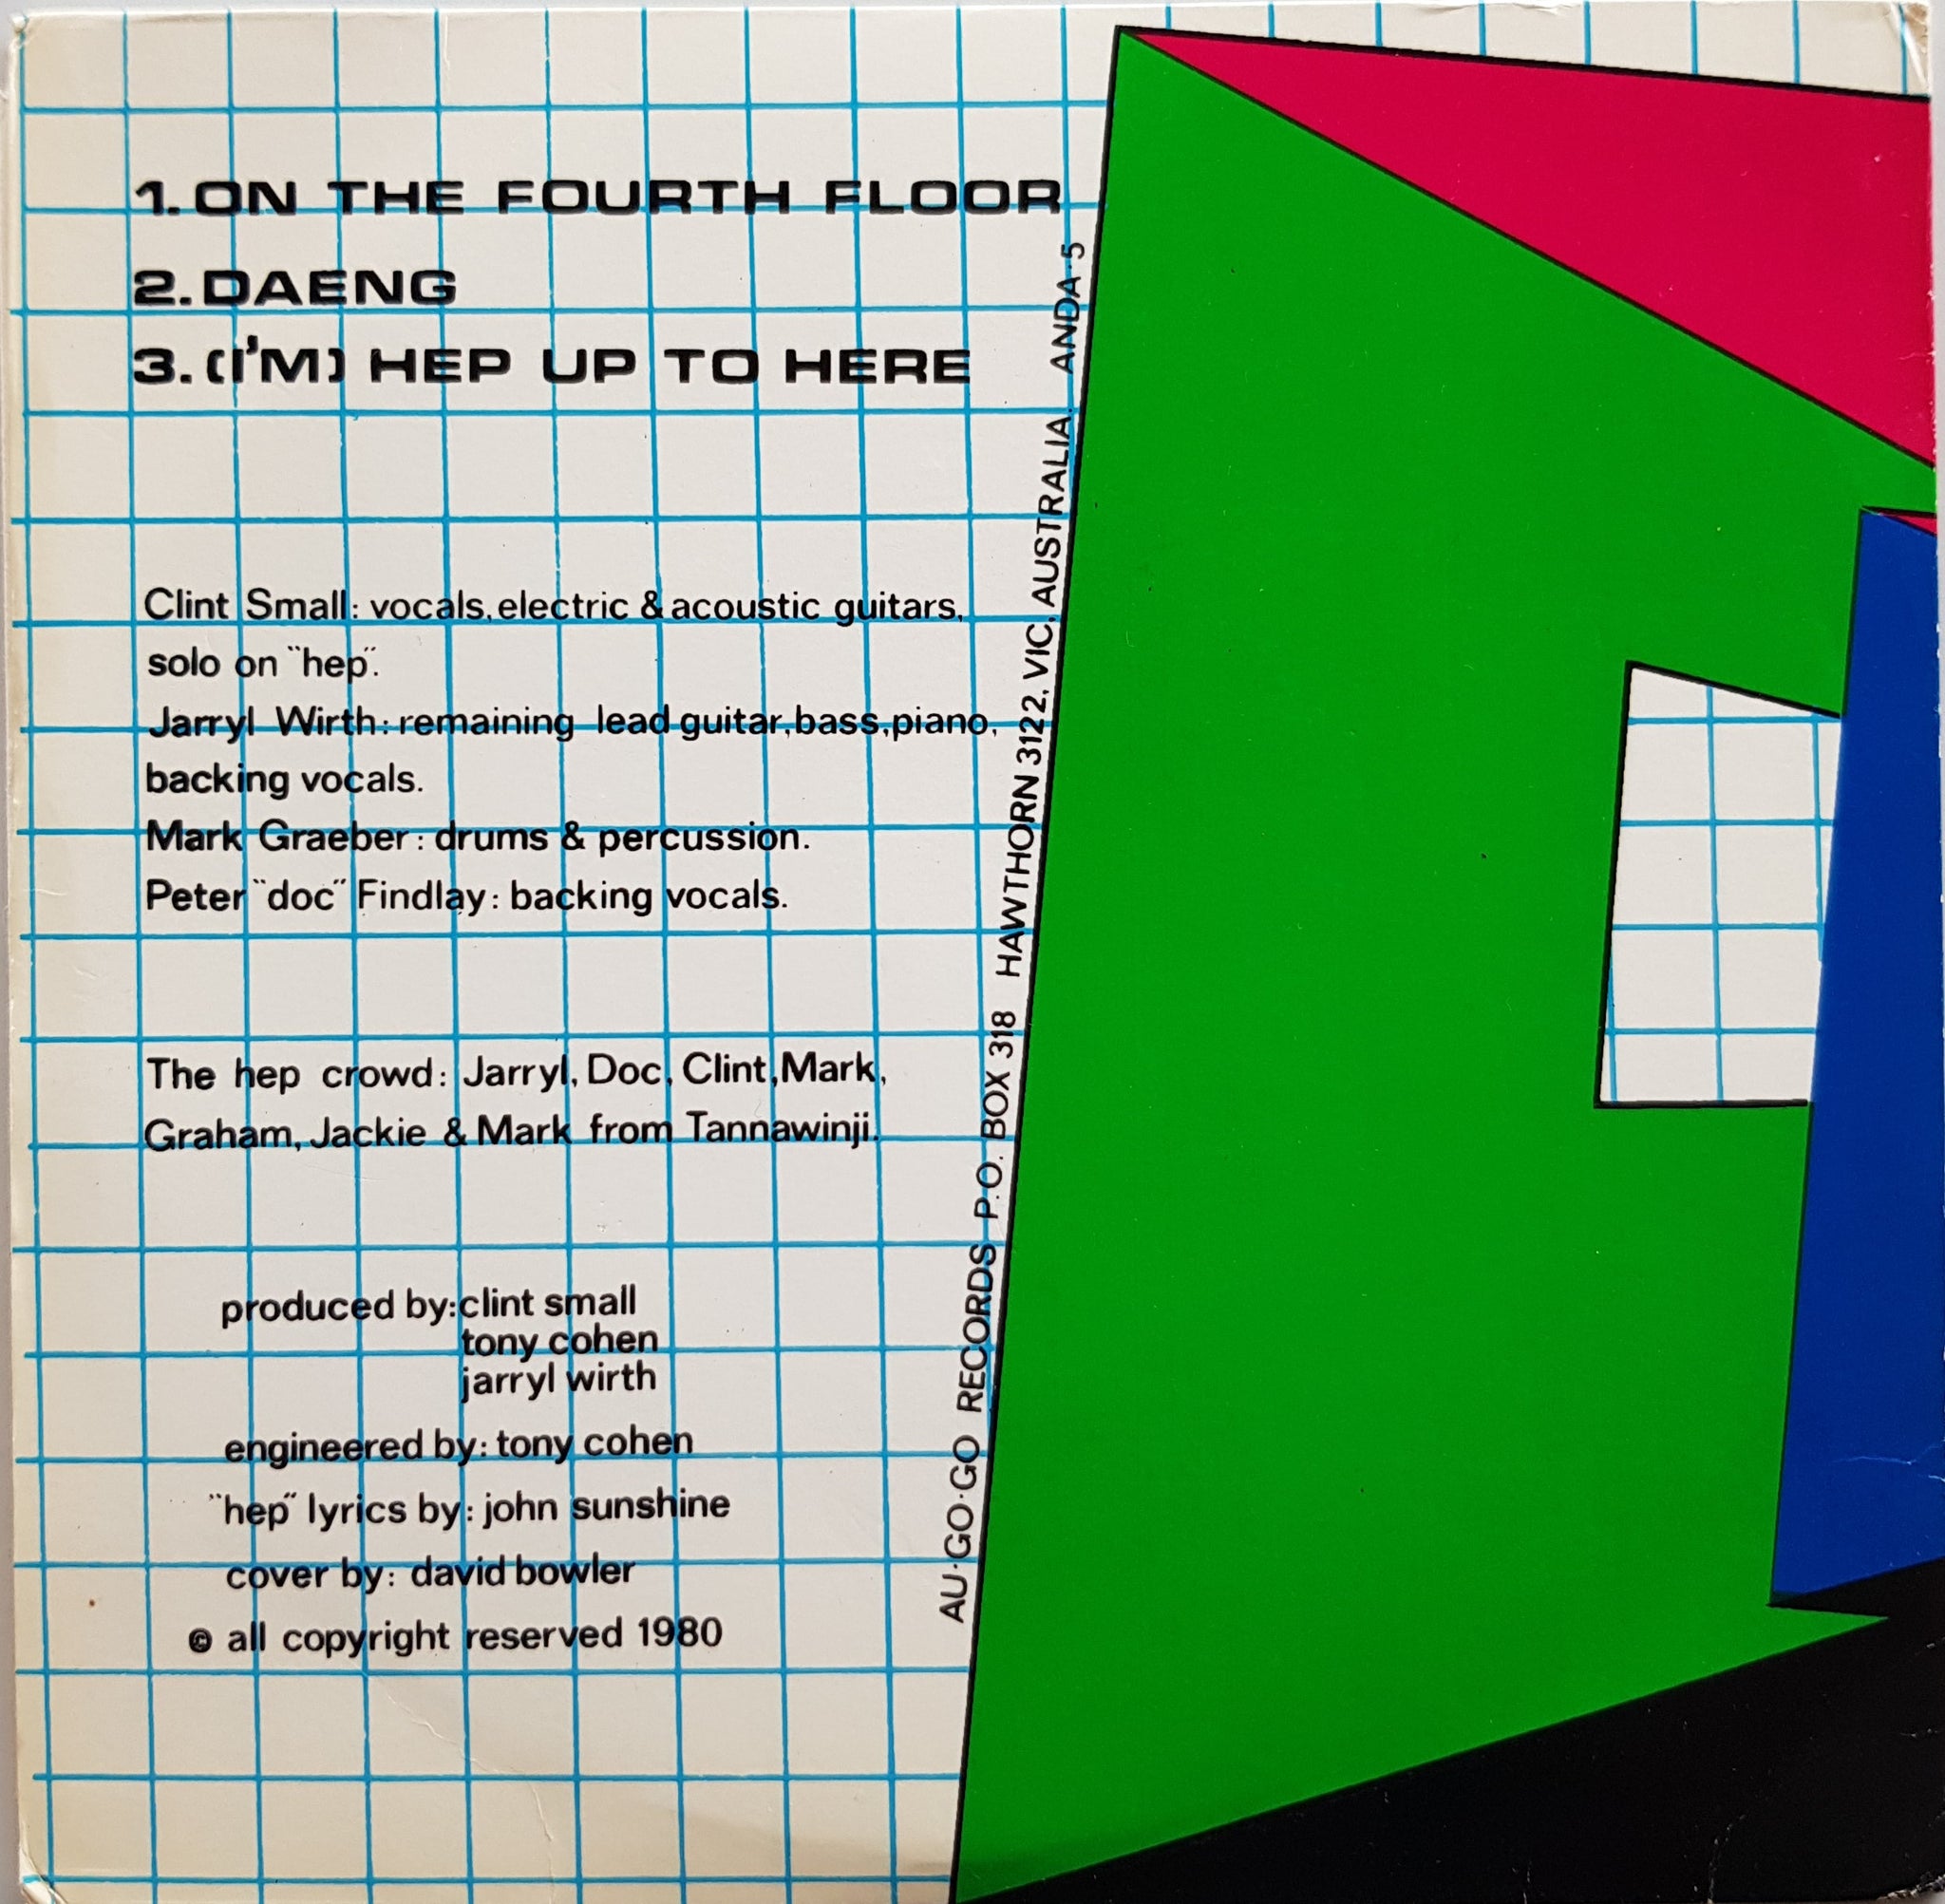 1. ON THE FOURTH FLOOR
2. DAENG
3. (I'M) HEP UP TO HERE
Clint Small: vocals, electric & acoustic guitars,
solo on "hep".
Jarryl Wirth: remaining lead guitar, bass, piano,
backing vocals.
Mark Graeber: drums & percussion.
Peter "doc" Findlay: backing vocals.
The hep crowd: Jarryl, Doc, Clint, Mark,
Graham, Jackie & Mark from Tannawinji.
produced by: clint small
tony cohen
jarryl wirth
engineered by: tony cohen
"hep" lyrics by: john sunshine
cover by: david bowler
© all copyright reserved 1980
AU·GO·GO RECORDS P.O. BOX 318 HAWTHORN 3122, VIC, AUSTRALIA. ANDA·5